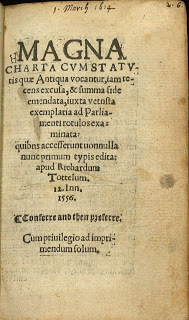 1. March 1614
MAGNA
CHARTA CVM STATV-
tis quæ Antiqua vocantur, iam re-
cens excusa, & summa fide
emendata, iuxta vetusta
exemplaria ad Parlia-
menti rotulos exa-
minata:
quibus accesserunt nonnulla
nunc primum typis edita:
apud Richardum
Tottelum.
12. Iun.
1556.
¶Conferre and then preferre.
Cum priuilegio ad impri-
mendum solum.